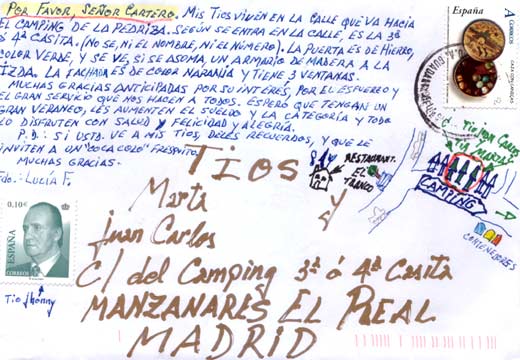 POR FAVOR, SEÑOR CARTERO. MIS TIOS VIVEN EN LA CALLE QUE VA HACIA
EL CAMPING DE LA PEDRIZA. SEGÚN SE ENTRA EN LA CALLE, ES LA 3ª
ó 4ª CASITA. (NO SE, NI EL NOMBRE, NI EL NÚMERO). LA PUERTA ES DE HIERRO,
COLOR VERDE, Y SE VE, SI SE ASOMA, UN ARMARIO DE MADERA A LA
IZDA. LA FACHADA ES DE COLOR NARANJA Y TIENE 3 VENTANAS.
MUCHAS GRACIAS ANTICIPADAS POR SU INTERÉS, POR EL ESFUERZO Y
EL GRAN SERVICIO QUE NOS HACEN A TODOS. ESPERO QUE TENGAN UN
GRAN VERANEO, LES AUMENTEN EL SUELDO Y LA CATEGORÍA Y TODO
LO DISFRUTEN CON SALUD Y FELICIDAD Y ALEGRÍA.
P.D.: SI USTD. VE A MIS TIOS, DELES RECUERDOS, Y QUE LE
INVITEN A UN "COCA COLO" FRESQUITO.
MUCHAS GRACIAS.
Fdo.: LUCÍA F.
España
A
CORREOS
TIOS
Marta
y
Juan Carlos
C/ del Camping 3ª ó 4ª Casita
MANZANARES EL REAL
MADRID
RESTAURANT.
EL
TRANCO
CAMPING
CONTENEDORES
0,10€
ESPAÑA
CORREOS
Tio Jhonny